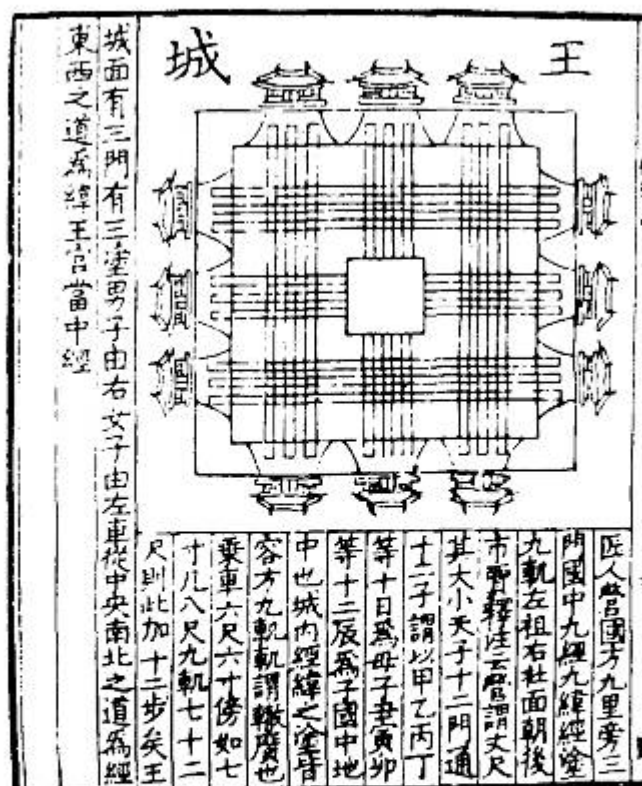 王城
匠人營國方九里旁三
門國中九經九緯經塗
九軌左祖右社面朝後
市釋注云營謂丈尺
其大小天子十二門通
十二子謂以甲乙丙丁
等十日爲母子丑寅卯
等十二辰爲子國中地
中也城内經緯之塗皆
容方九軌軌謂轍廣也
乘車六尺六寸傍加七
寸凡八尺九軌七十二
尺則此加十二步矣王
城面有三門有三塗男子由右女子由左車從中央南北之道爲經
東西之道爲緯王宮當中經